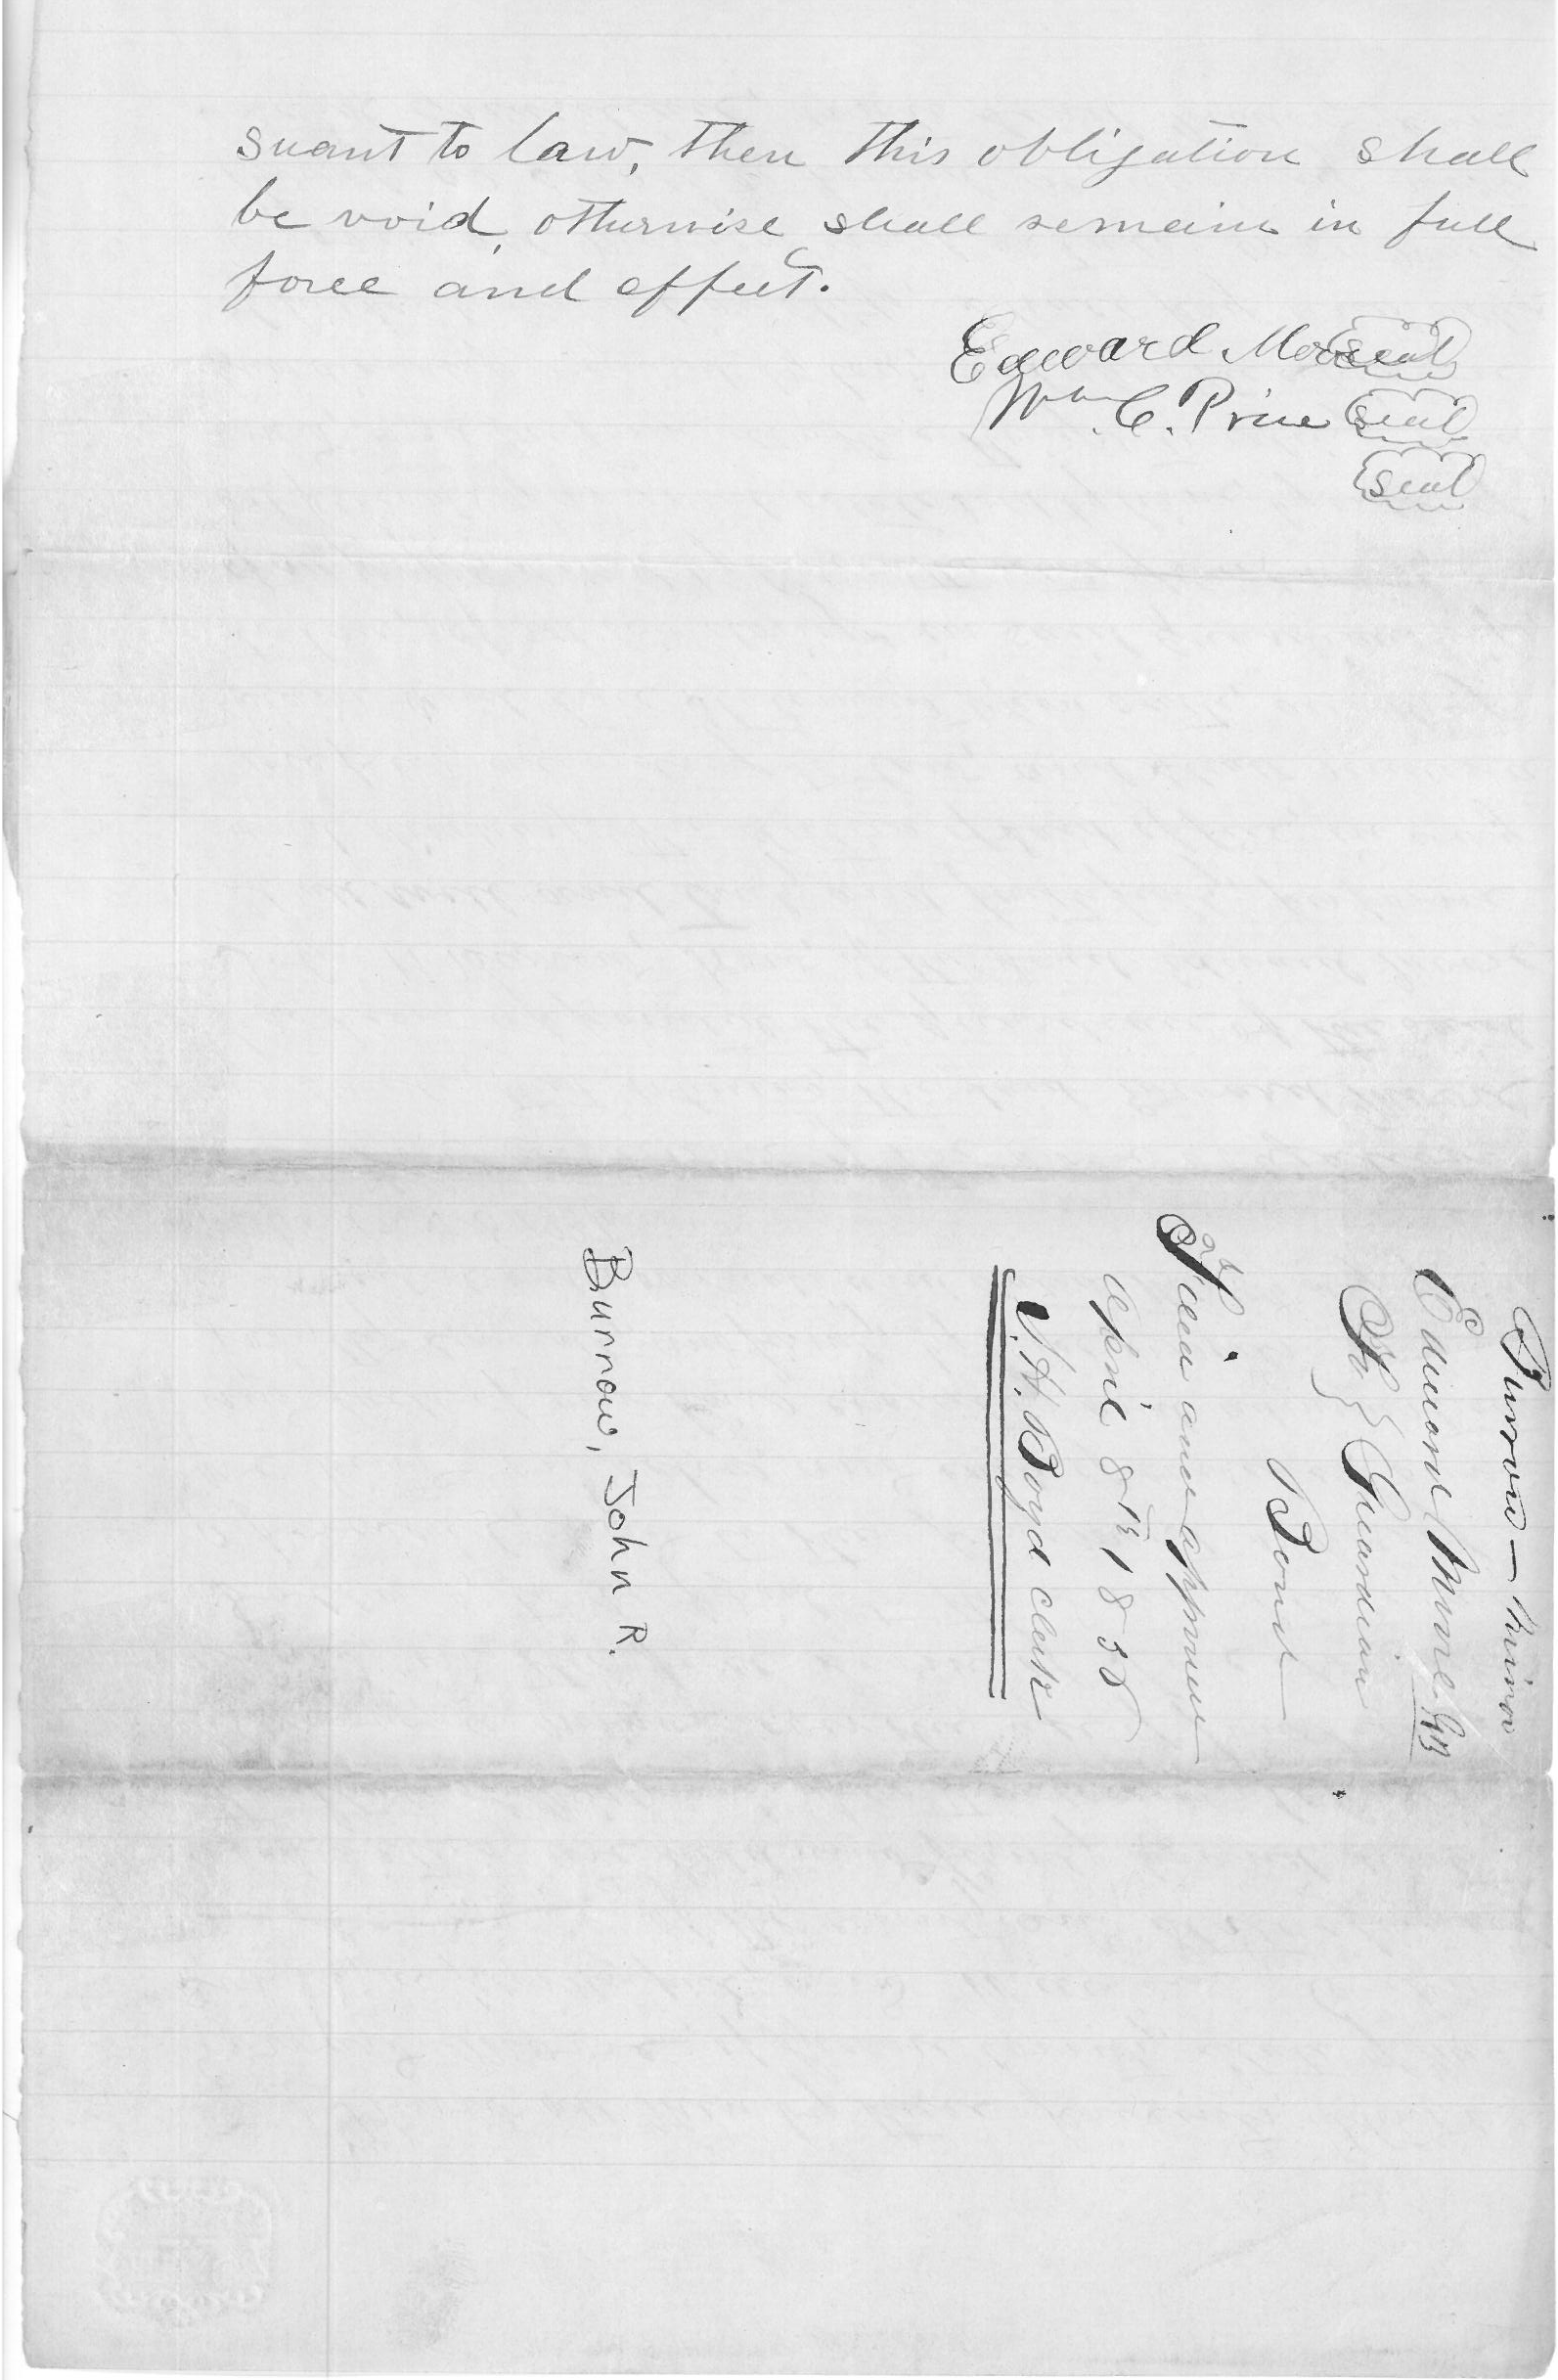 suant to law, then this obligation shall
be void, otherwise shall remain in full
force and effect.
Edward Moore seal
Wm. C. Price seal
seal
Burrow — Minor
Edward Moore
To } Guardian
Bond
Filed and approved
April 8th 1888
J. H. Boyd clerk
Burrow, John R.